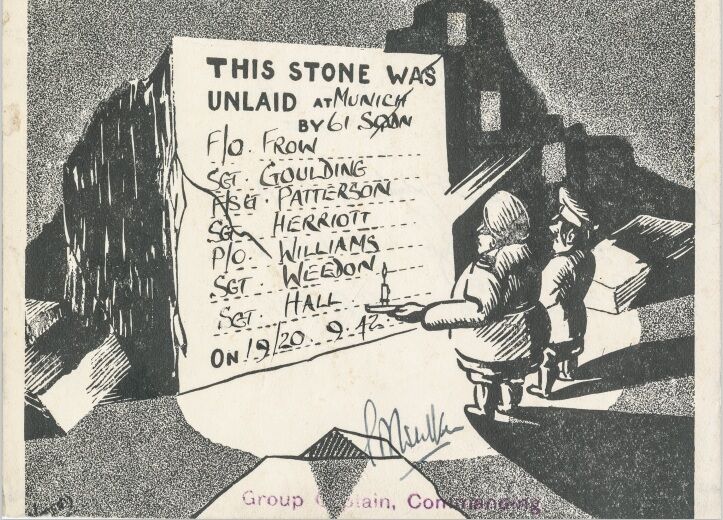 THIS STONE WAS
UNLAID AT MUNICH
BY 61 SQDN
F/O. FROW
SGT. GOULDING
F/SGT. PATTERSON
SGT. HERRIOTT
P/O. WILLIAMS
SGT. WEEDON
SGT HALL
ON 19/20. 9. 42
Group Captain, Commanding